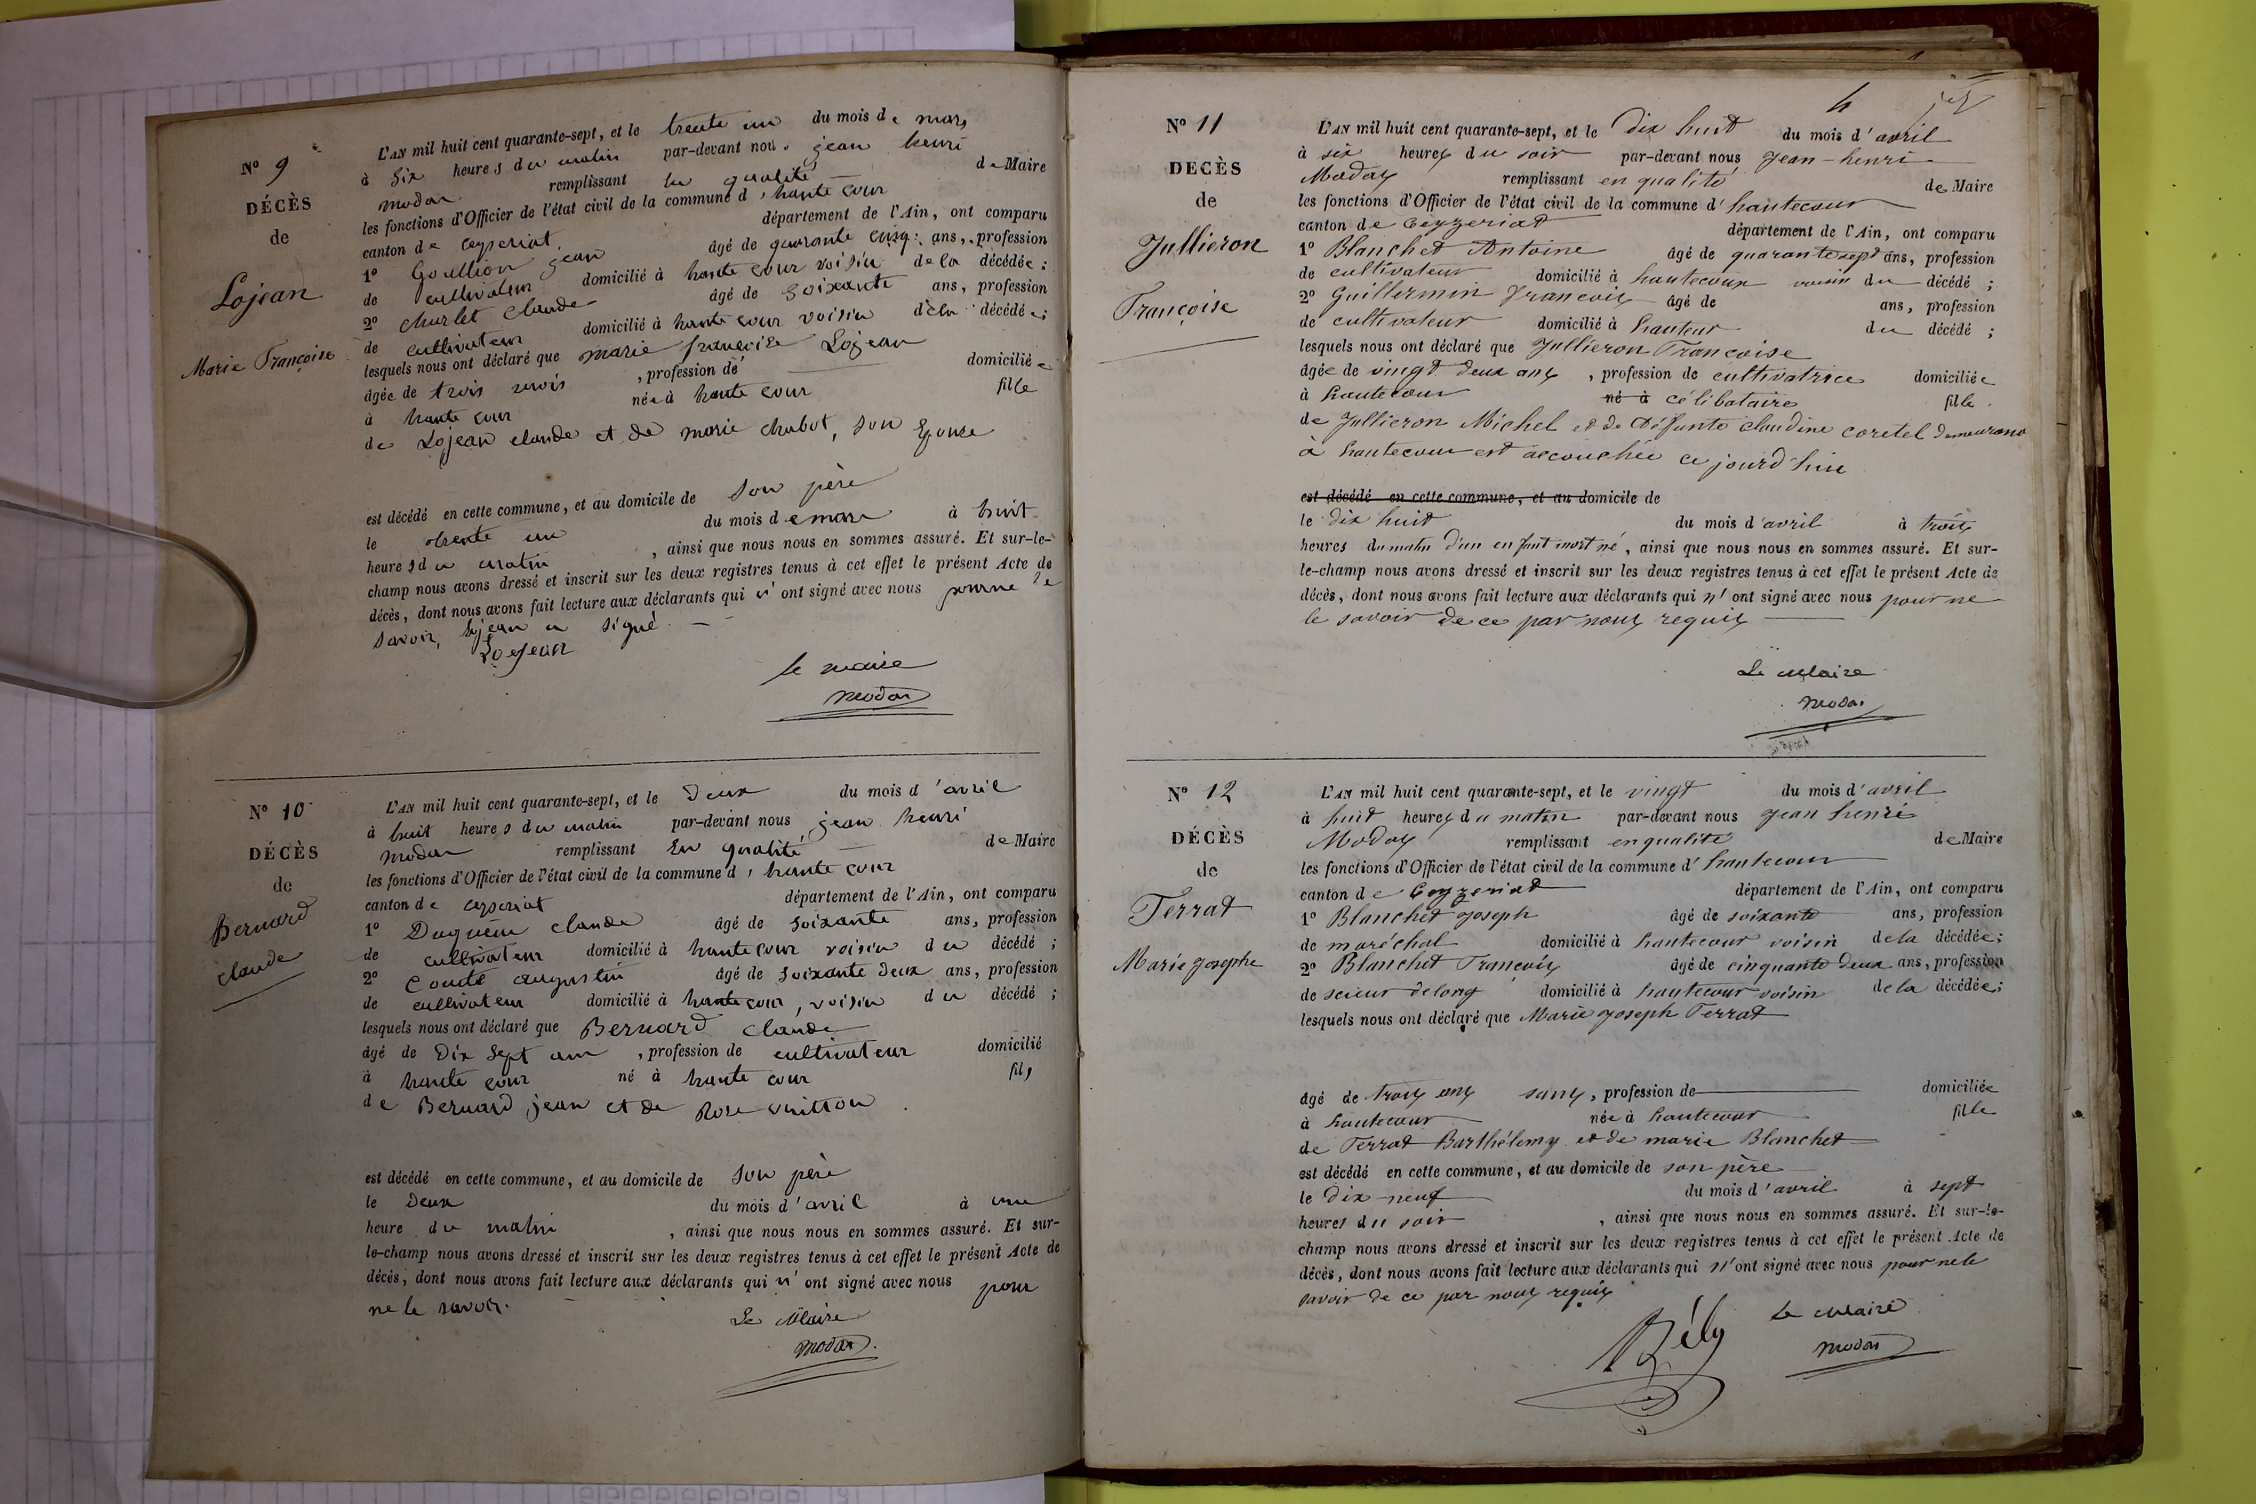 N° 9
DÉCÈS
de
Lojean
Marie Françoise
L'AN mil huit cent quarante-sept, et le trente un du mois de mars
à six heures du matin par-devant nous jean henri
modas remplissant en qualité de Maire
les fonctions d'Officier de l'état civil de la commune d'haute cour
canton de ceyseriat département de l'Ain, ont comparu
1° Goullion jean âgé de quarante cinq ans, profession
de cultivateur domicilié à haute cour voisin de la décédée;
2° Churlet Claude âgé de soixante ans, profession
de cultivateur domicilié à haute cour voisin de la décédée;
lesquels nous ont déclaré que marie françoise Lojean
âgée de trois mois, profession de domiciliée
à haute cour née à haute cour fille
de Lojean claude et de marie chabot, son Epouse
est décédé en cette commune, et au domicile de son père
le trente un du mois de mars à huit
heures du matin, ainsi que nous nous en sommes assuré. Et sur-le-
champ nous avons dressé et inscrit sur les deux registres tenus à cet effet le présent Acte de
décès, dont nous avons fait lecture aux déclarants qui n'ont signé avec nous pour ne le
savoir, lojean a signé
Lojean
le maire
modas
N° 10
DÉCÈS
de
Bernard
claude
L'AN mil huit cent quarante-sept, et le deux du mois d'avril
à huit heures du matin par-devant nous jean henri
modas remplissant En qualité de Maire
les fonctions d'Officier de l'état civil de la commune d'haute cour
canton de ceyseriat département de l'Ain, ont comparu
1° Duguein claude âgé de soixante ans, profession
de cultivateur domicilié à haute cour voisin du décédé;
2° Comte augustin âgé de soixante deux ans, profession
de cultivateur domicilié à haute cour, voisin du décédé;
lesquels nous ont déclaré que Bernard claude
âgé de dix sept ans, profession de cultivateur domicilié
à haute cour né à haute cour fils
de Bernard jean et de Rose vuitton
est décédé en cette commune, et au domicile de son père
le deux du mois d'avril à une
heure du matin, ainsi que nous nous en sommes assuré. Et sur-
le-champ nous avons dressé et inscrit sur les deux registres tenus à cet effet le présent Acte de
décès, dont nous avons fait lecture aux déclarants qui n'ont signé avec nous pour
ne le savoir.
Le Maire
modas
4
N° 11
DECÈS
de
Jullieron
Françoise
L'AN mil huit cent quarante-sept, et le dix huit du mois d'avril
à six heures du soir par-devant nous jean-henri
Modas remplissant en qualité de Maire
les fonctions d'Officier de l'état civil de la commune d'hautecour
canton de Ceyzeriat département de l'Ain, ont comparu
1° Blanchet Antoine âgé de quarante sept ans, profession
de cultivateur domicilié à hautecour voisin du décédé;
2° Guillermin françois âgé de ans, profession
de cultivateur domicilié à hauteur du décédé;
lesquels nous ont déclaré que Jullieron Françoise
âgée de vingt deux ans, profession de cultivatrice domiciliée
à hautecour né à célibataire fille
de Jullieron Michel et de défunte claudine coretel demeurant
à hautecour est accouchée ce jourd'hui
est décédé en cette commune, et au domicile de
le dix huit du mois d'avril à trois
heures du matin d'un enfant mort né, ainsi que nous nous en sommes assuré. Et sur-
le-champ nous avons dressé et inscrit sur les deux registres tenus à cet effet le présent Acte de
décès, dont nous avons fait lecture aux déclarants qui n'ont signé avec nous pour ne
le savoir de ce par nous requis
Le Maire
modas
N° 12
DÉCÈS
de
Ferrat
Marie josephe
L'AN mil huit cent quarante-sept, et le vingt du mois d'avril
à huit heures du matin par-devant nous jean henri
Modas remplissant en qualité de Maire
les fonctions d'Officier de l'état civil de la commune d'hautecour
canton de Ceyzeriat département de l'Ain, ont comparu
1° Blanchet joseph âgé de soixante ans, profession
de maréchal domicilié à hautecour voisin de la décédée;
2° Blanchet François âgé de cinquante deux ans, profession
de scieur de long domicilié à hautecour voisin de la décédée;
lesquels nous ont déclaré que Marie joseph Ferrat
âgé de trois ans sans, profession de domiciliée
à hautecour née à hautecour fille
de Ferrat Barthélemy et de marie Blanchet
est décédé en cette commune, et au domicile de son père
le dix-neuf du mois d'avril à sept
heures du soir, ainsi que nous nous en sommes assuré. Et sur-le-
champ nous avons dressé et inscrit sur les deux registres tenus à cet effet le présent Acte de
décès, dont nous avons fait lecture aux déclarants qui n'ont signé avec nous pour ne le
savoir de ce par nous requis
Bély
Le Maire
modas